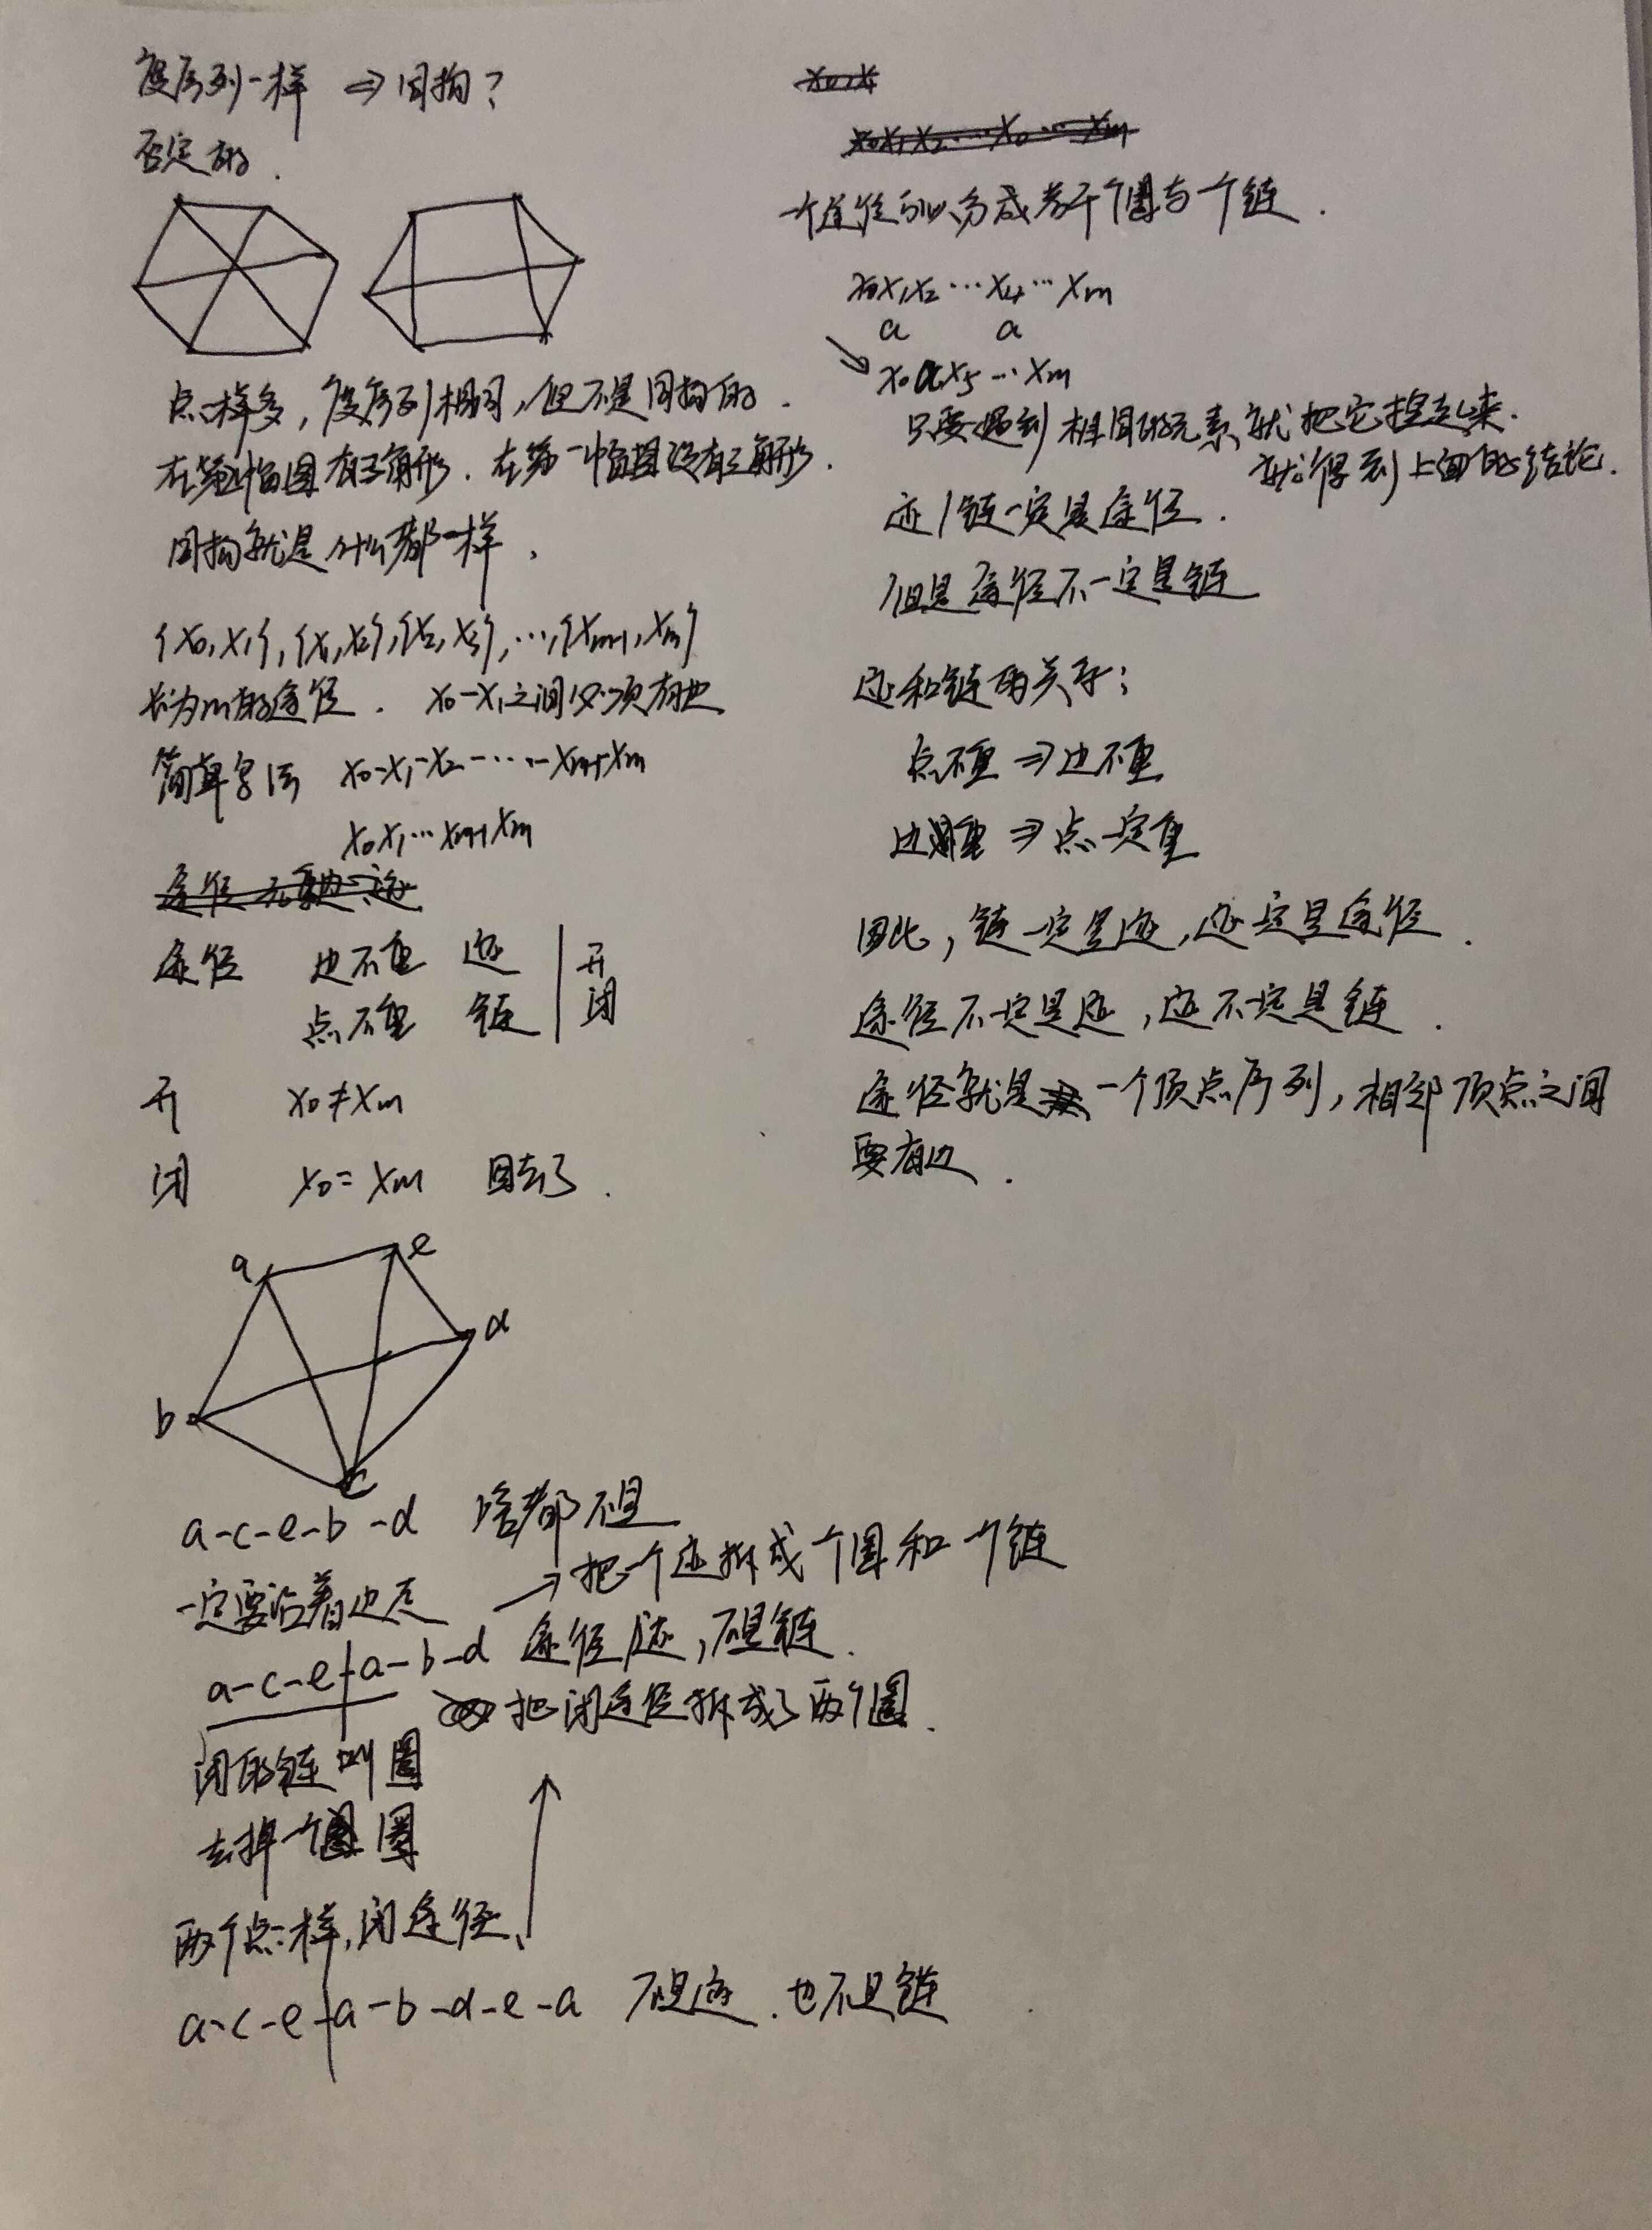 度序列一样 ⇒ 同构?
否定的.
点一样多, 度序列相同, 但不是同构的.
在第二幅图有三角形. 在第一幅图没有三角形.
同构就是什么都一样.
{x₀,x₁},{x₁,x₂},{x₂,x₃},…,{xₘ₋₁,xₘ}
长为m的途径. x₀-x₁之间必须有边
简单写法 x₀-x₁-x₂-…-xₘ₋₁-xₘ
x₀x₁…xₘ₋₁xₘ
途径 边不重 迹 开
点不重 链 闭
开 x₀≠xₘ
闭 x₀=xₘ 回去了.
a e
d
b
c
a-c-e-b-d 啥都不是
一定要沿着边走 → 把一个迹拆成一个圈和一个链
a-c-e-a-b-d 途径 迹, 不是链.
把闭途径拆成了两个圈.
闭的链叫圈
去掉一个圈
两个点一样, 闭途径,
a-c-e-a-b-d-e-a 不是迹. 也不是链
一个途径可以分成若干个圈与一个链.
x₀x₁x₂…x₄…xₘ
a a
↘ x₀ax₅…xₘ
只要遇到相同的元素, 就把它捏起来.
就得到上面的结论.
迹/链一定是途径.
但是途径不一定是链
迹和链的关系:
点不重 ⇒ 边不重
边重 ⇒ 点一定重
因此, 链一定是迹, 迹一定是途径.
途径不一定是迹, 迹不一定是链.
途径就是一个顶点序列, 相邻顶点之间
要有边.